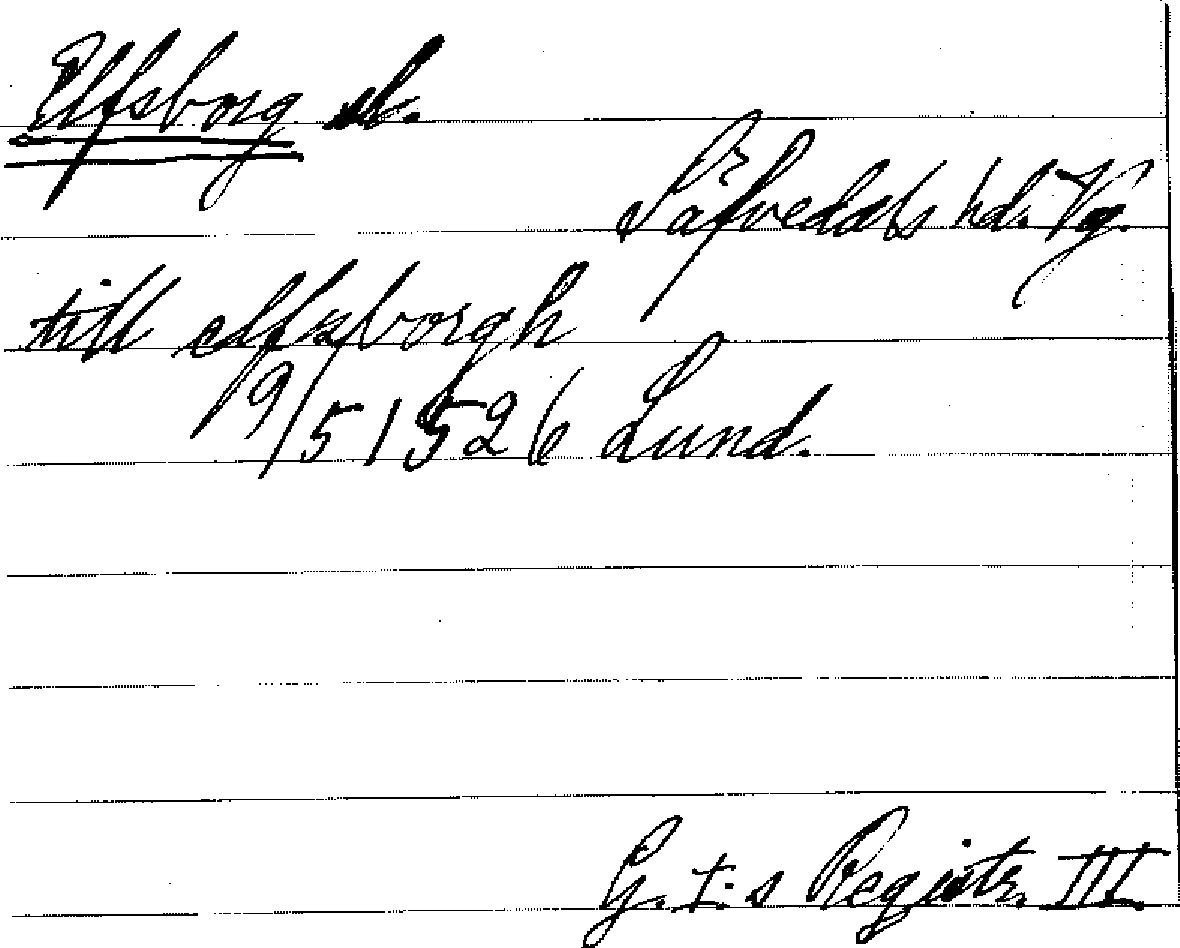 Elfsborg sl.
Säfvedals hd. Vg.
till elfsborgh
19/5 1526 Lund.
G. I:s Registr. III